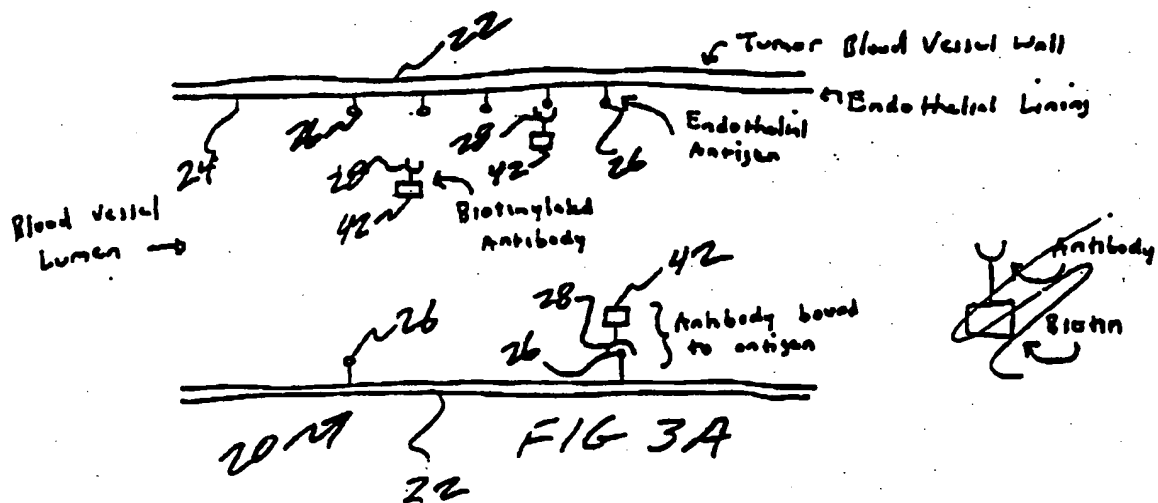 22
Tumor Blood Vessel Wall
Endothelial Lining
26
28
Endothelial
Antigen
26
42
24
28
42
Biotinylated
Antibody
Blood Vessel
Lumen
42
28
26
26
Antibody bound
to antigen
Antibody
Biotin
20
22
FIG 3A